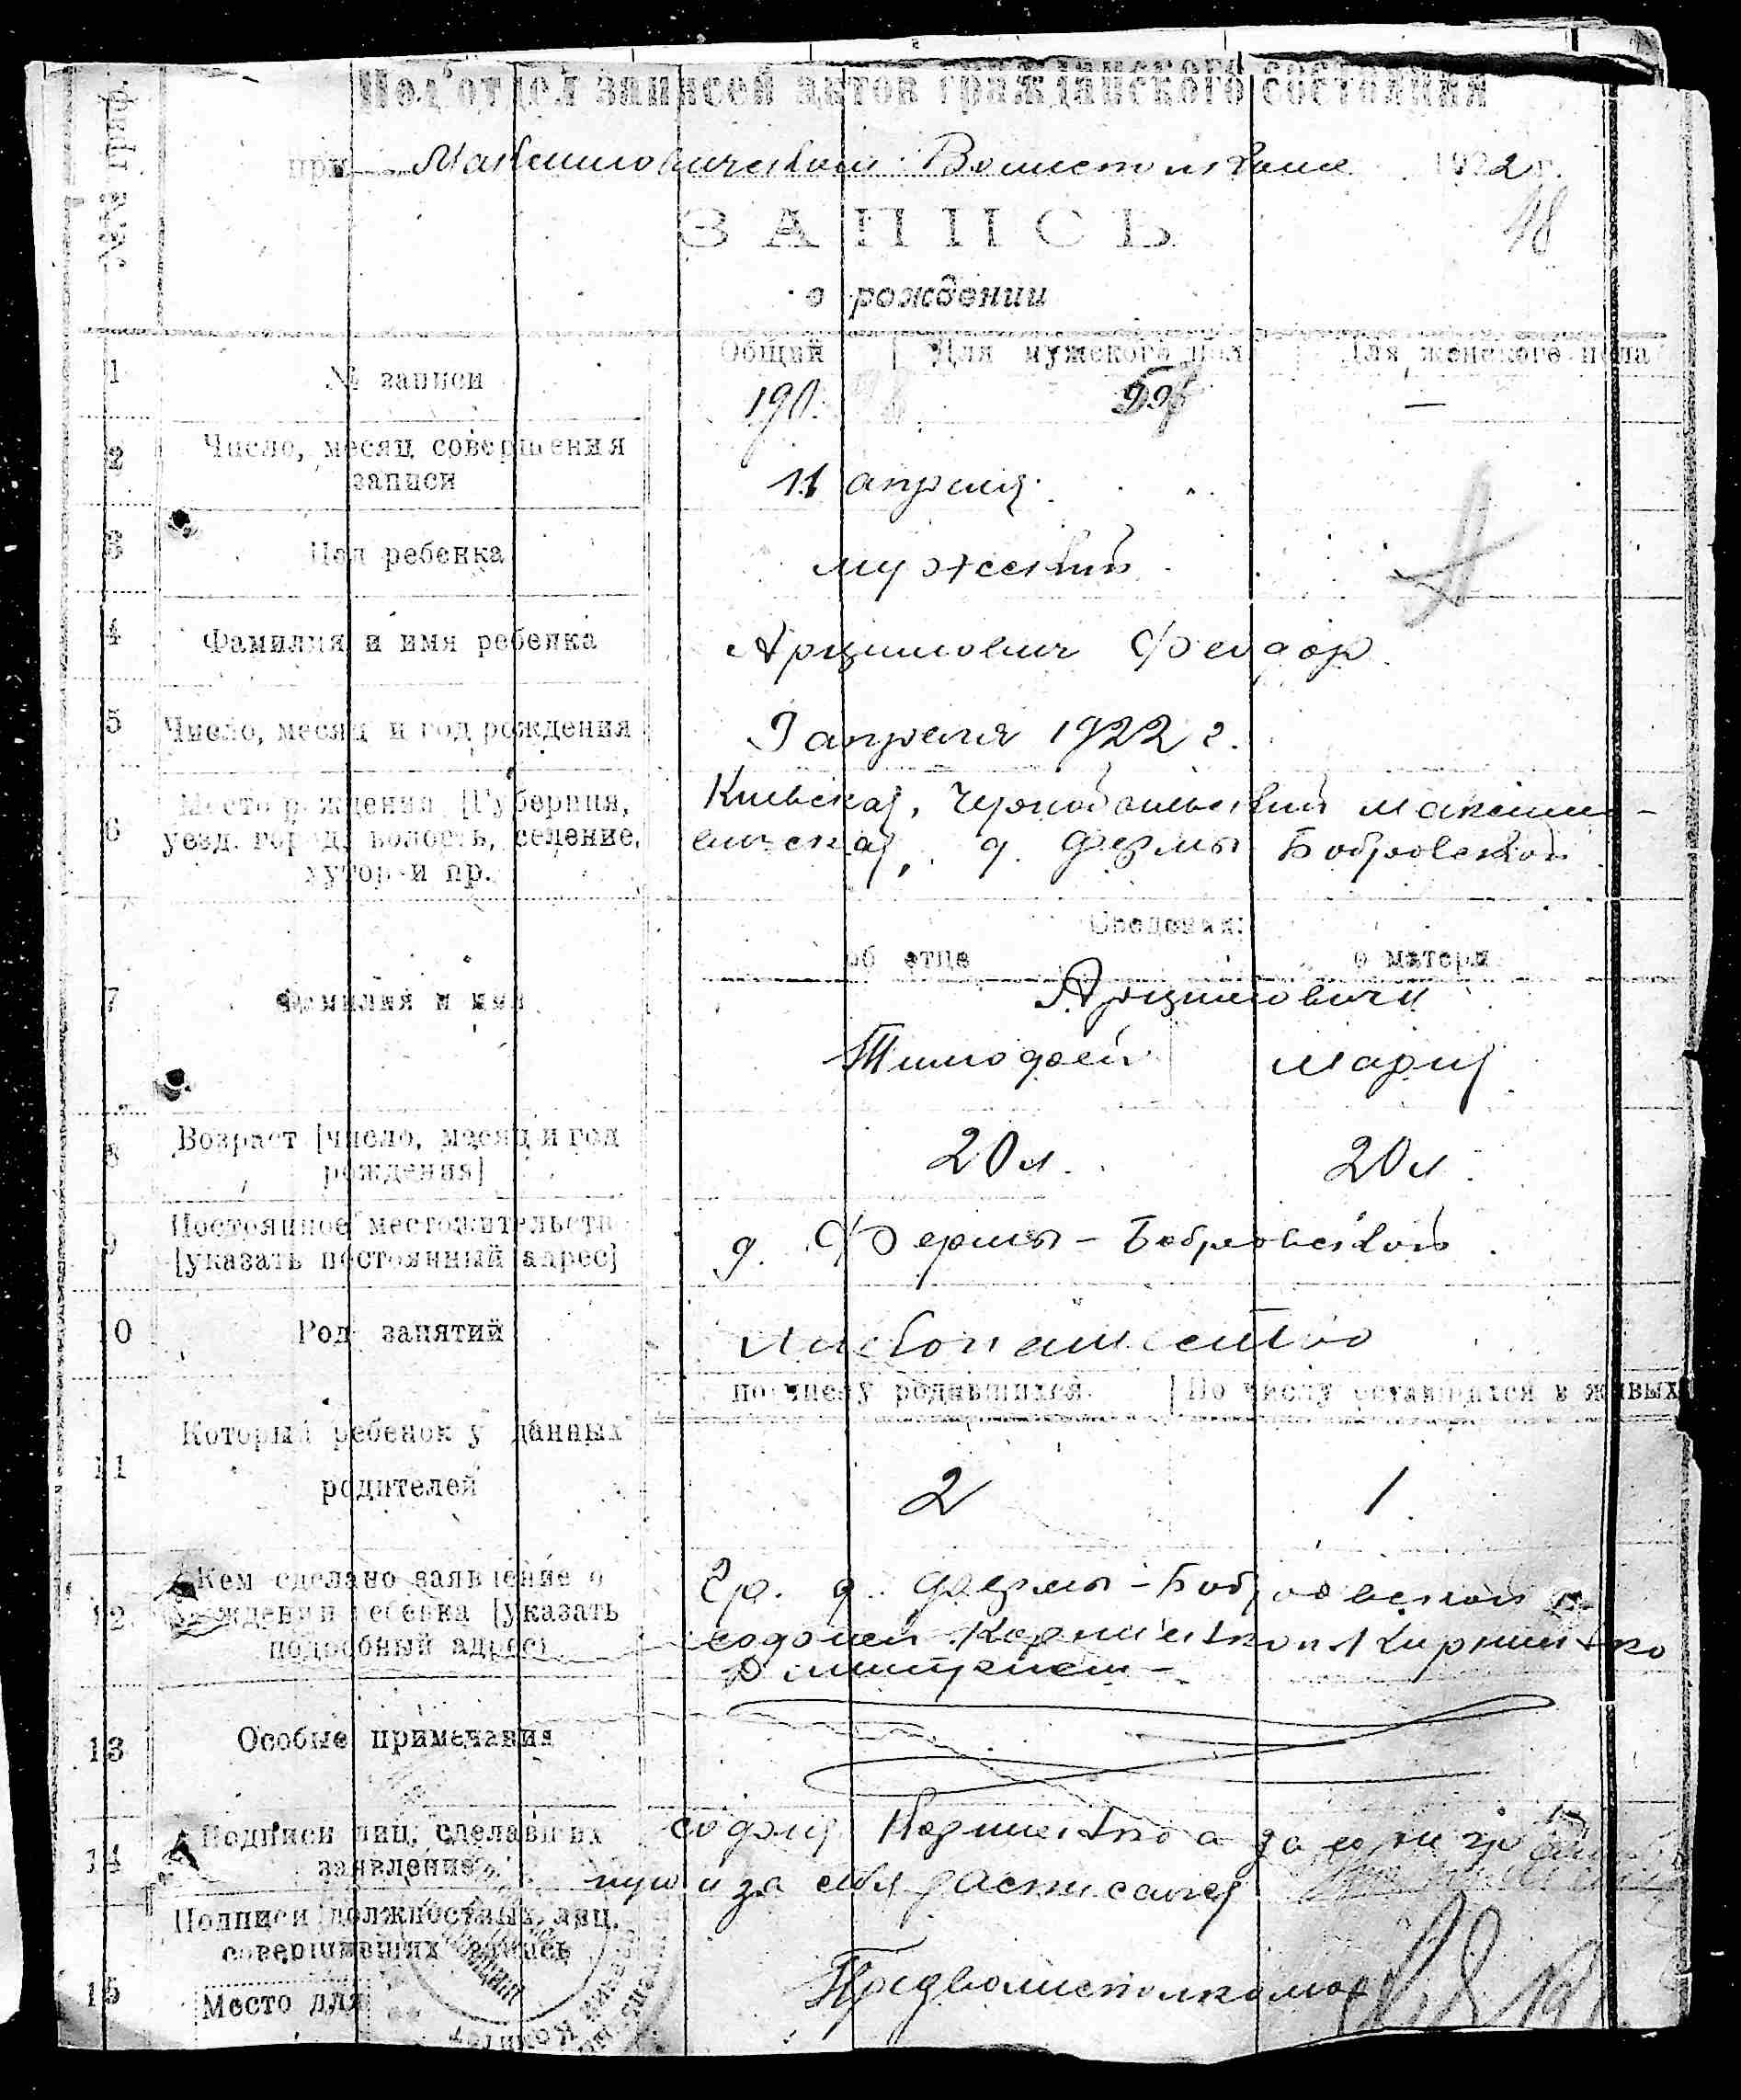 №№ граф.
Под'отдел записей актов гражданского состояния
при Максимовическом Волисполкоме 1922 г.
18
ЗАПИСЬ
о рождении
Общий | Для мужского пола | Для женского пола
1 № записи 190. —
2 Число, месяц совершения
записи 11 апреля
3 Пол ребенка мужеский
4 Фамилия и имя ребенка Арцимович Феодор
5 Число, месяц и год рождения апреля 1922 г.
6 Место рождения [Губерния,
уезд, город, волость, селение,
хутор и пр. Киевская, Чернобыльский Максимо-
вическая, д. Фермы Бобровской
Сведения:
об отце о матери
7 Фамилия и имя Арцимовичи
Тимофей Мария
8 Возраст [число, месяц и год
рождения] 20 л. 20 л.
9 Постоянное местожительство
[указать постоянный адрес] д. Фермы-Бобровской
10 Род занятий хлебопашество
по числу родившихся | По числу оставшихся в живых
11 Который ребенок у данных
родителей 2 1
12 Кем сделано заявление о
рождении ребенка [указать
подробный адрес] Гр. д. Фермы-Бобровской
13 Особые примечания
14 Подписи лиц, сделавших
заявление София а за
и за себя расписался
Подписи должностных лиц,
совершивших запись
15 Место для
Предволисполкома